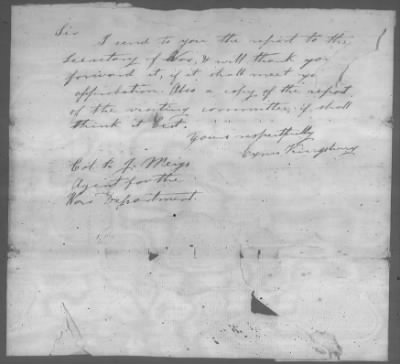 Sir
I send to you the report to the
Secretary of War, & will thank you
forward it, if it shall meet yr
approbation. Also a copy of the report
of the visiting committee, if shall
think it best.
Yours respectfully
Cyrus Kingsbury
Col. R. J. Meigs
Agent for the
War Department.